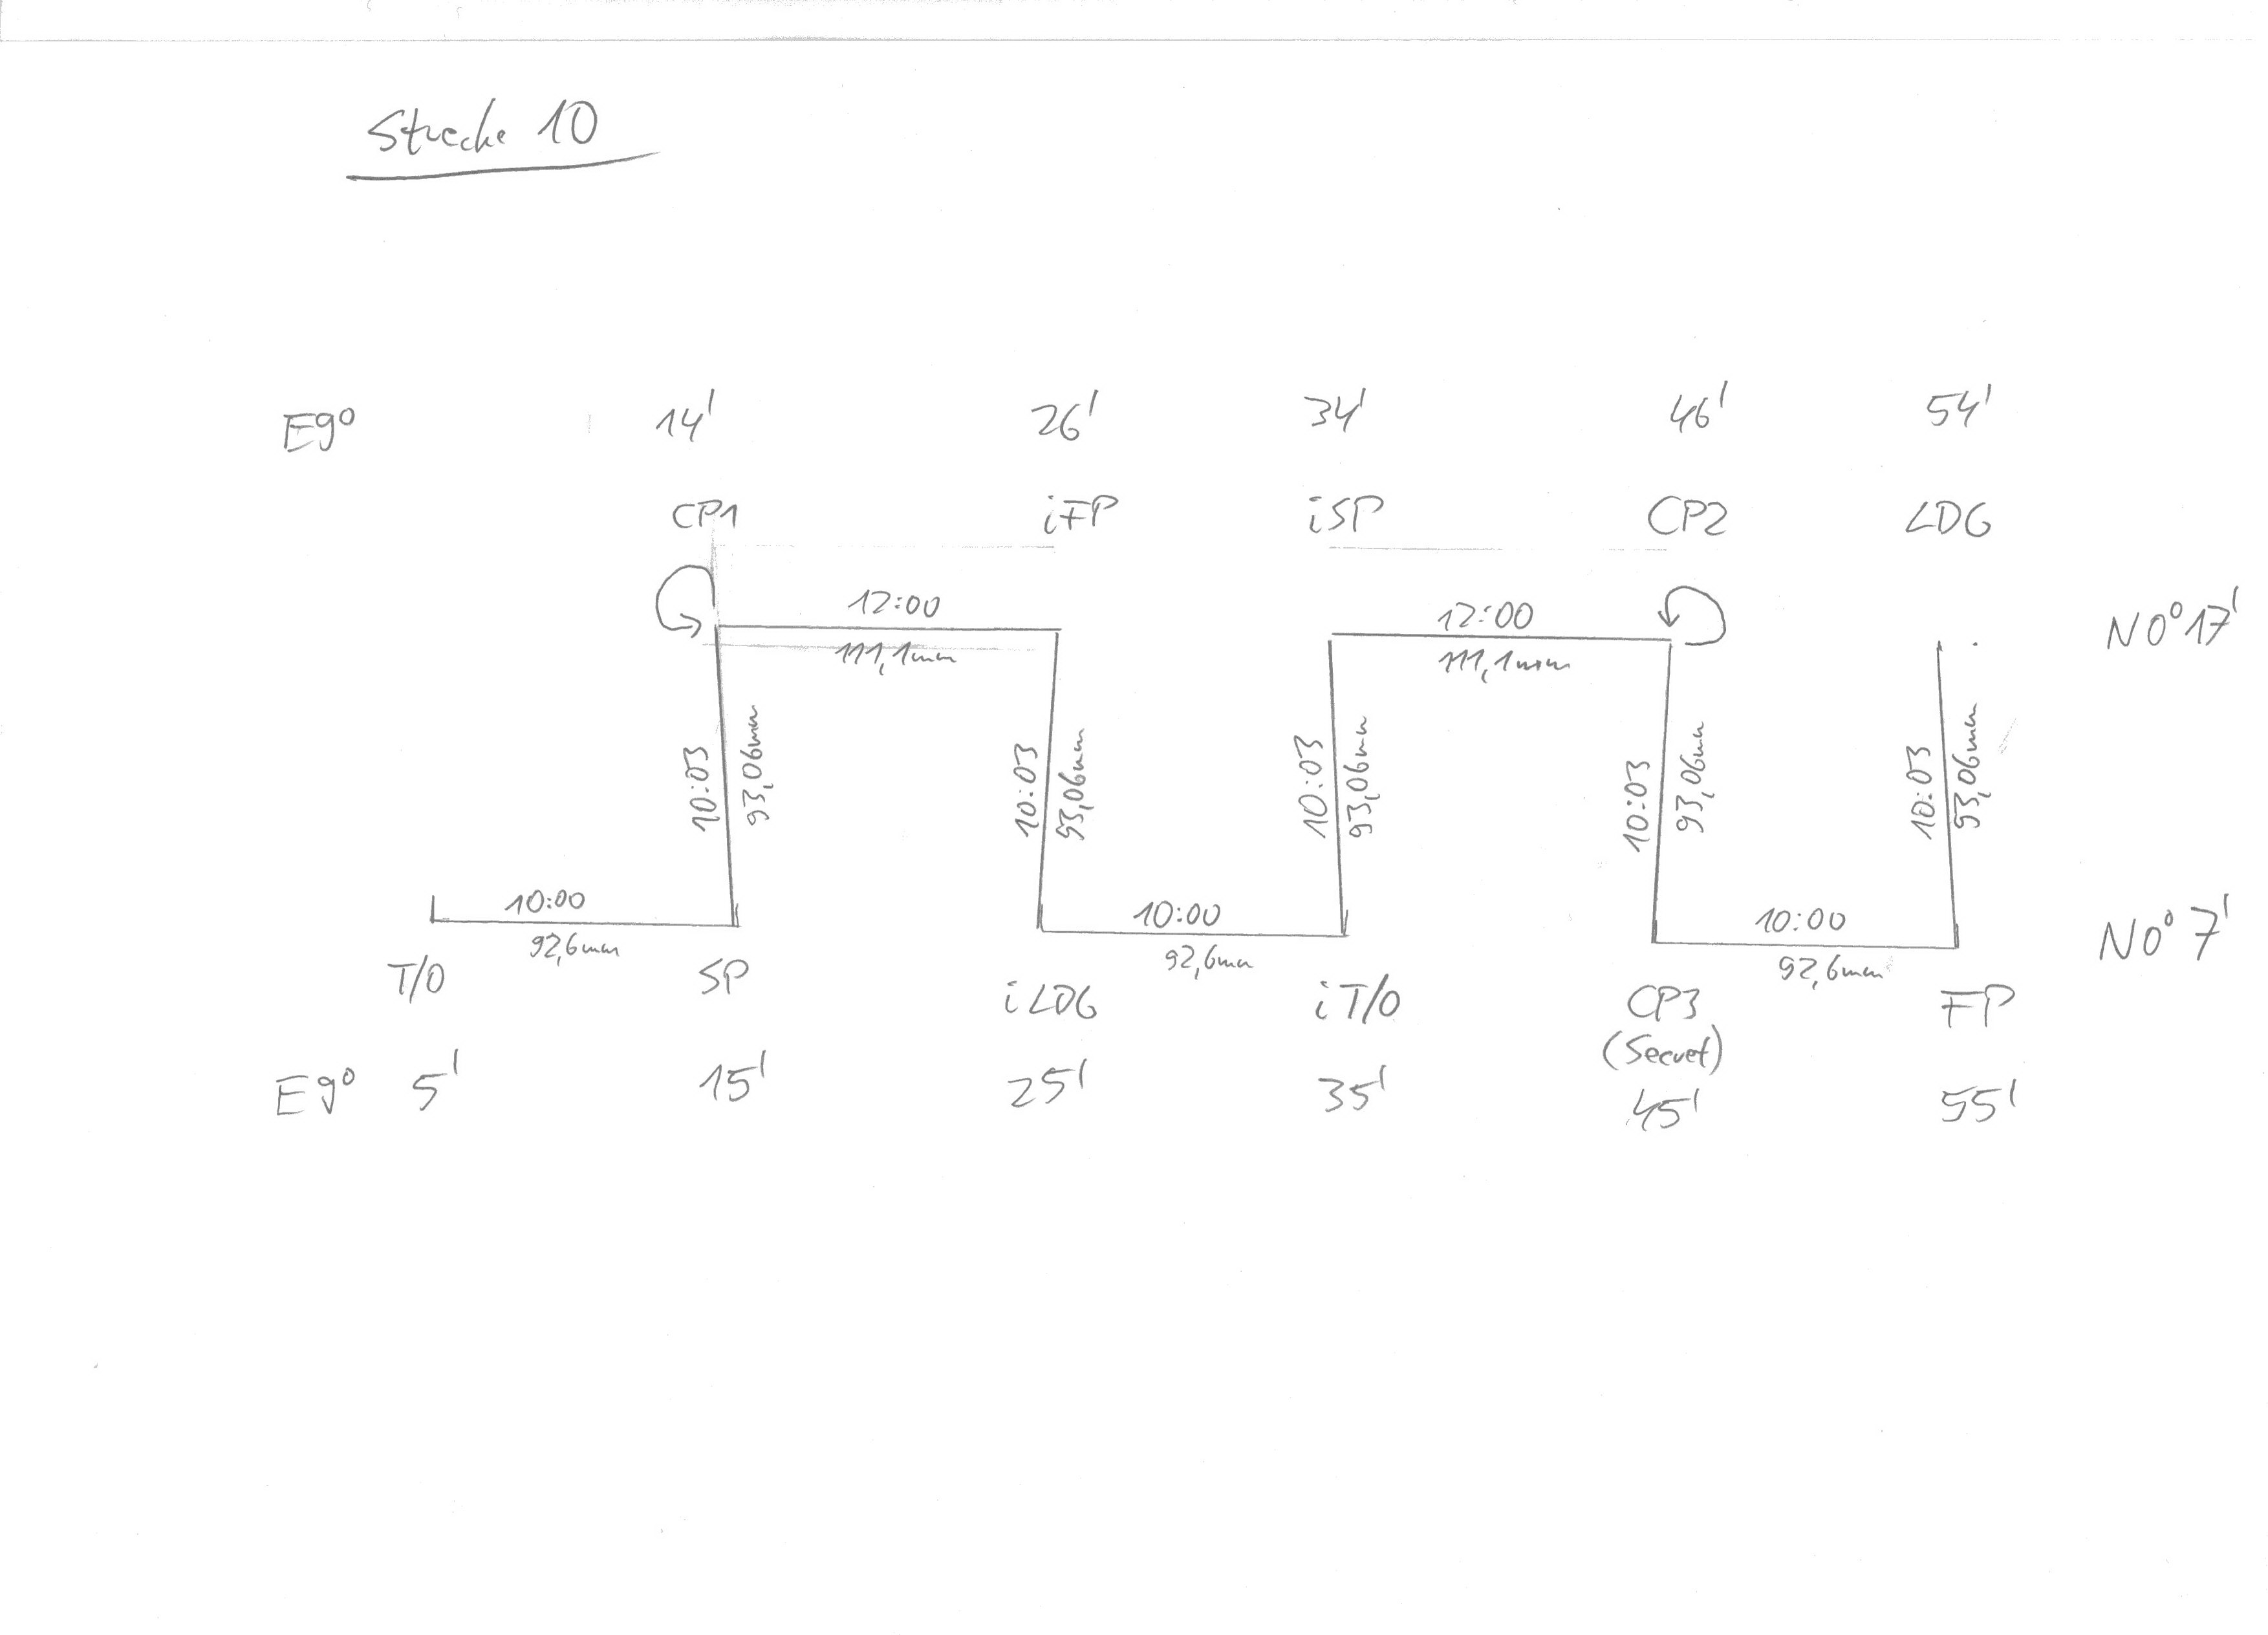 Strecke 10
E9° 14' 26' 34' 46' 54'
CP1 iFP iSP CP2 LDG
12:00 12:00
111,1mm 111,1mm
N0° 17'
10:03 93,06mm 10:03 93,06mm 10:03 93,06mm 10:03 93,06mm 10:03 93,06mm
10:00 10:00 10:00
92,6mm 92,6mm 92,6mm
N0° 7'
T/O SP iLDG iT/O CP3 FP
(Secret)
E9° 5' 15' 25' 35' 45' 55'